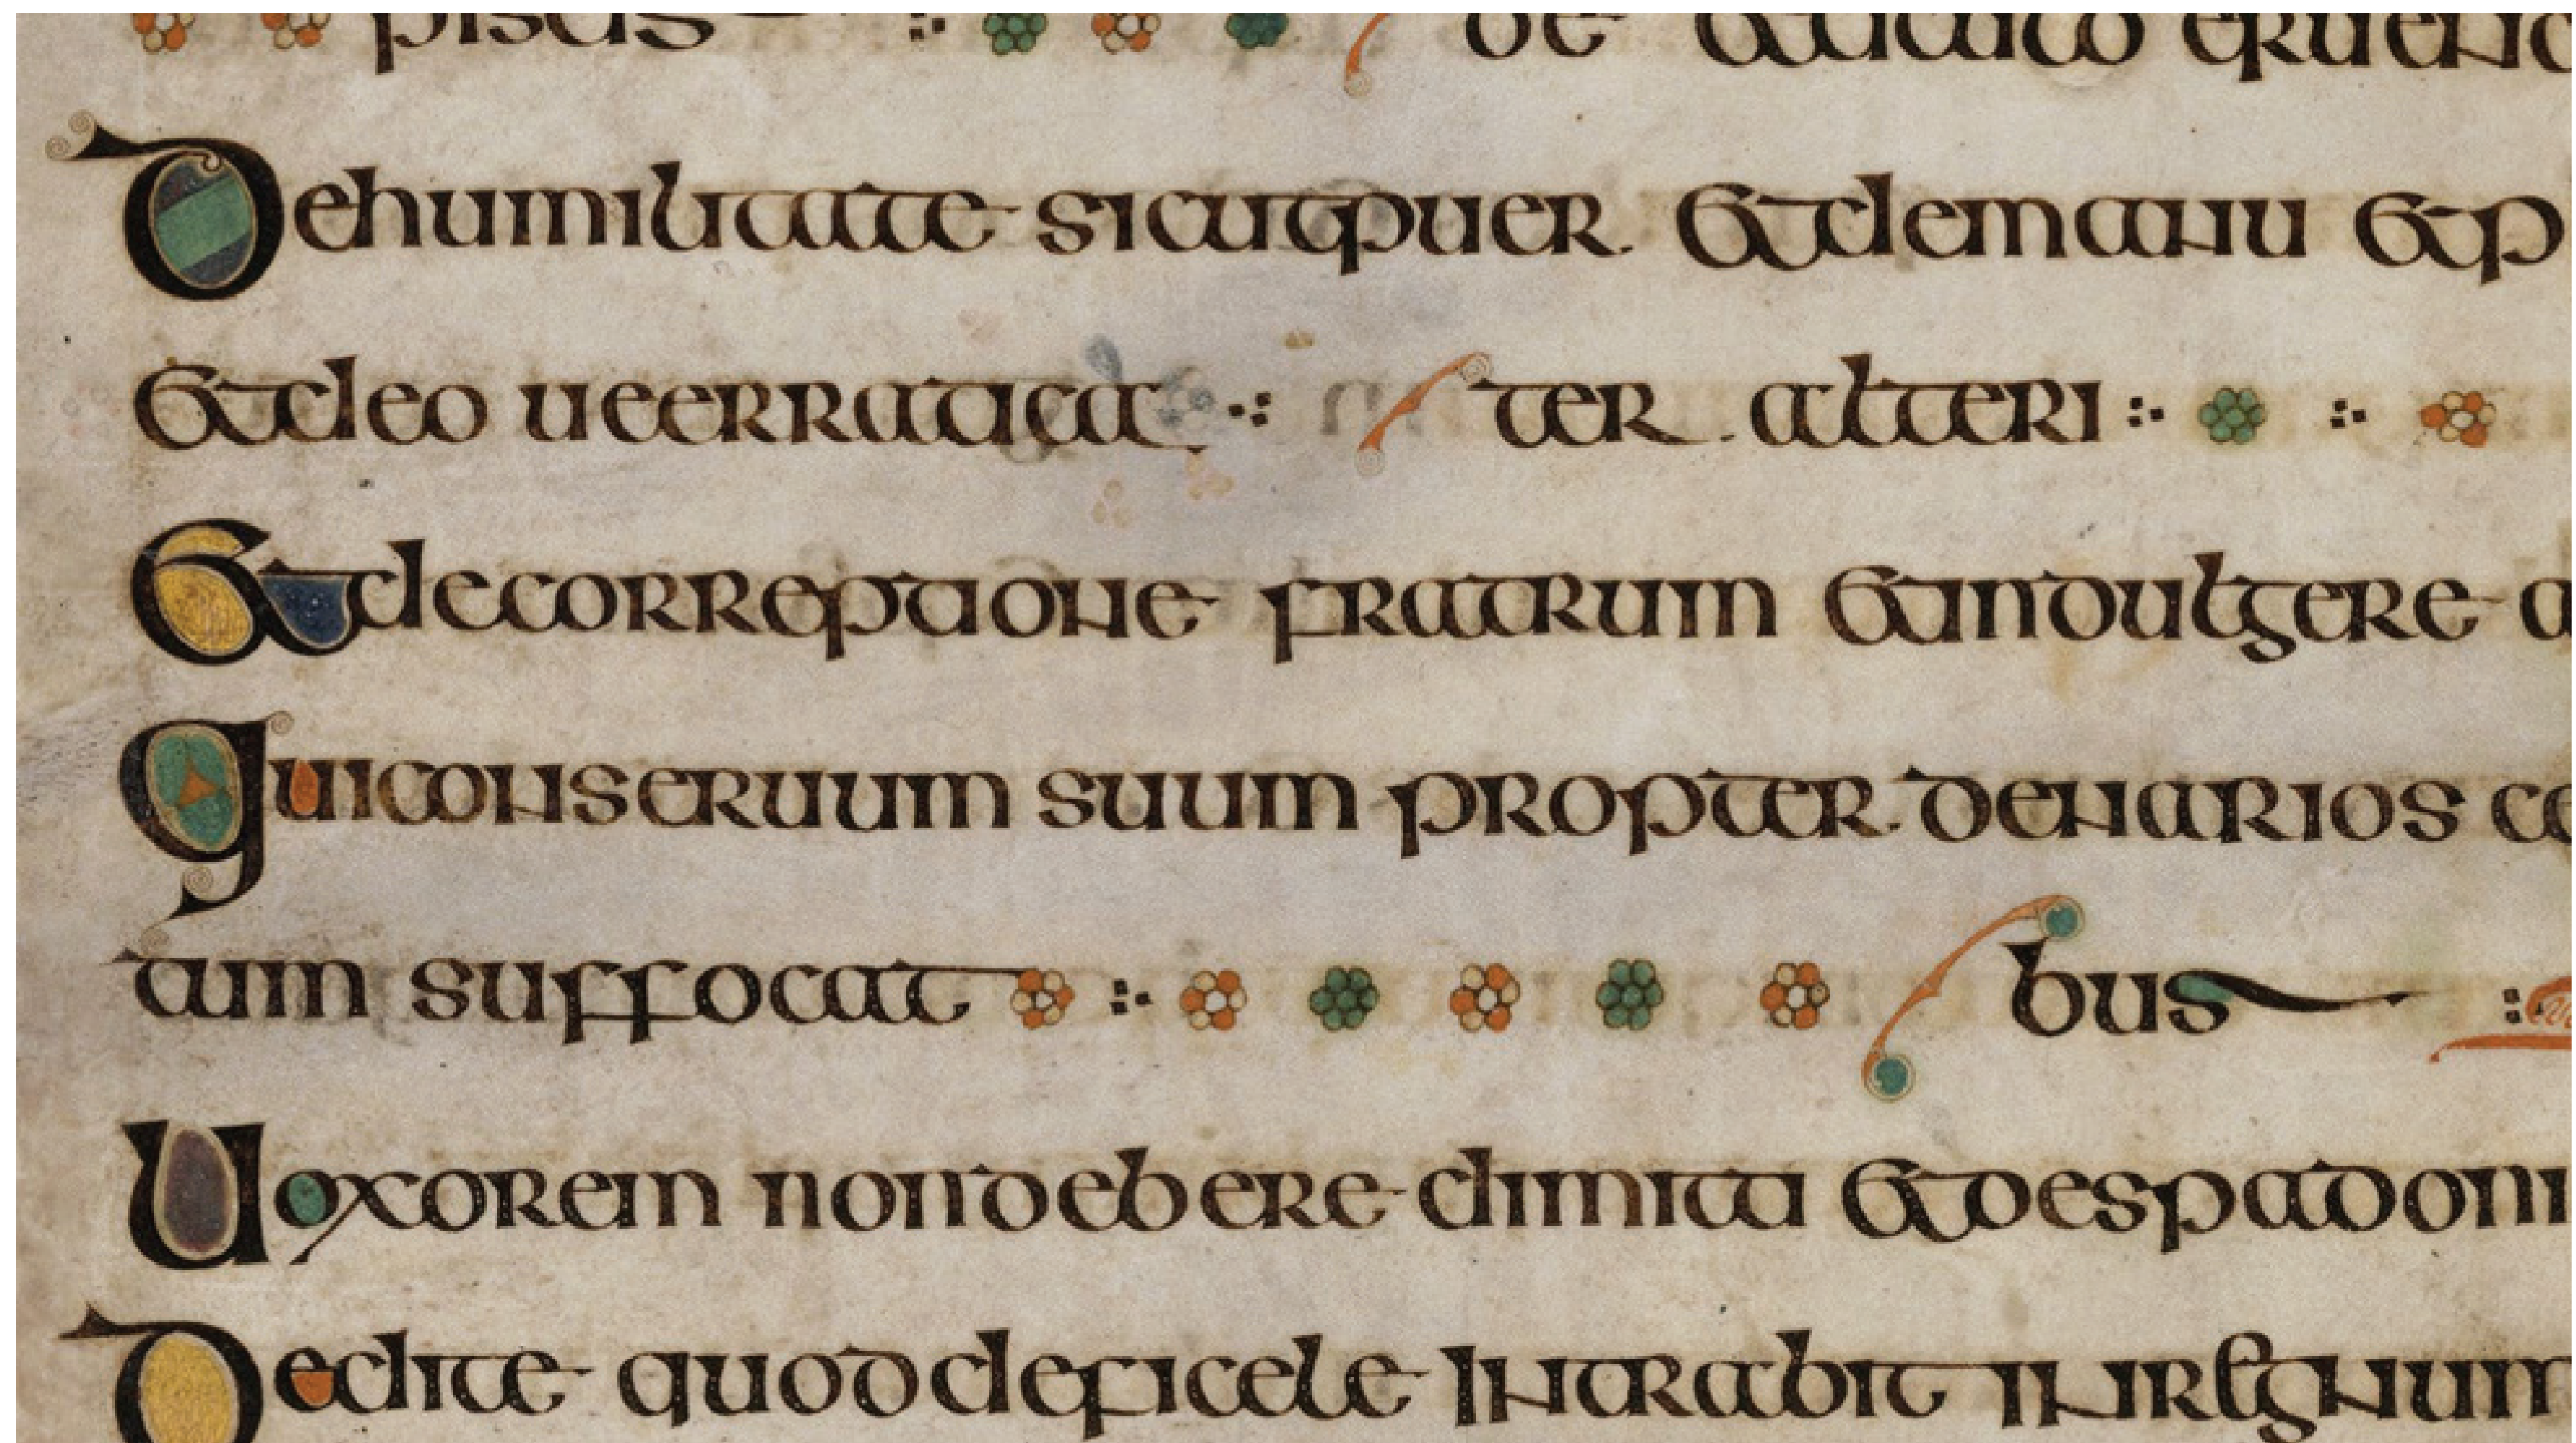 piscis
Dehumilitate sicut puer. Et demanu Et p
Et de o ueerratica ter. alteri
Et decorreptione fratrum Et indulgere
quiconseruum suum propter denarios
tum suffocat bus
Uoxorem non debere dimitti Et despadoni
Dedite quod deficele Intrabit in regnum